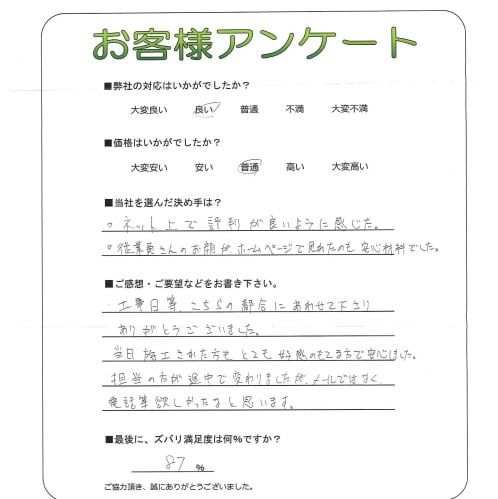 お客様アンケート
■弊社の対応はいかがでしたか？
大変良い 良い 普通 不満 大変不満
■価格はいかがでしたか？
大変安い 安い 普通 高い 大変高い
■当社を選んだ決め手は？
○ネット上で評判が良いように感じた。
○従業員さんのお顔がホームページで見れたのも安心材料でした。
■ご感想・ご要望などをお書き下さい。
工事日等、こちらの都合にあわせて下さり
ありがとうございました。
当日施工された方もとても好感のもてる方で安心しました。
担当の方が途中で変わりましたが、メールではなく、
電話等欲しかったなと思います。
■最後に、ズバリ満足度は何%ですか？
87 %
ご協力頂き、誠にありがとうございました。